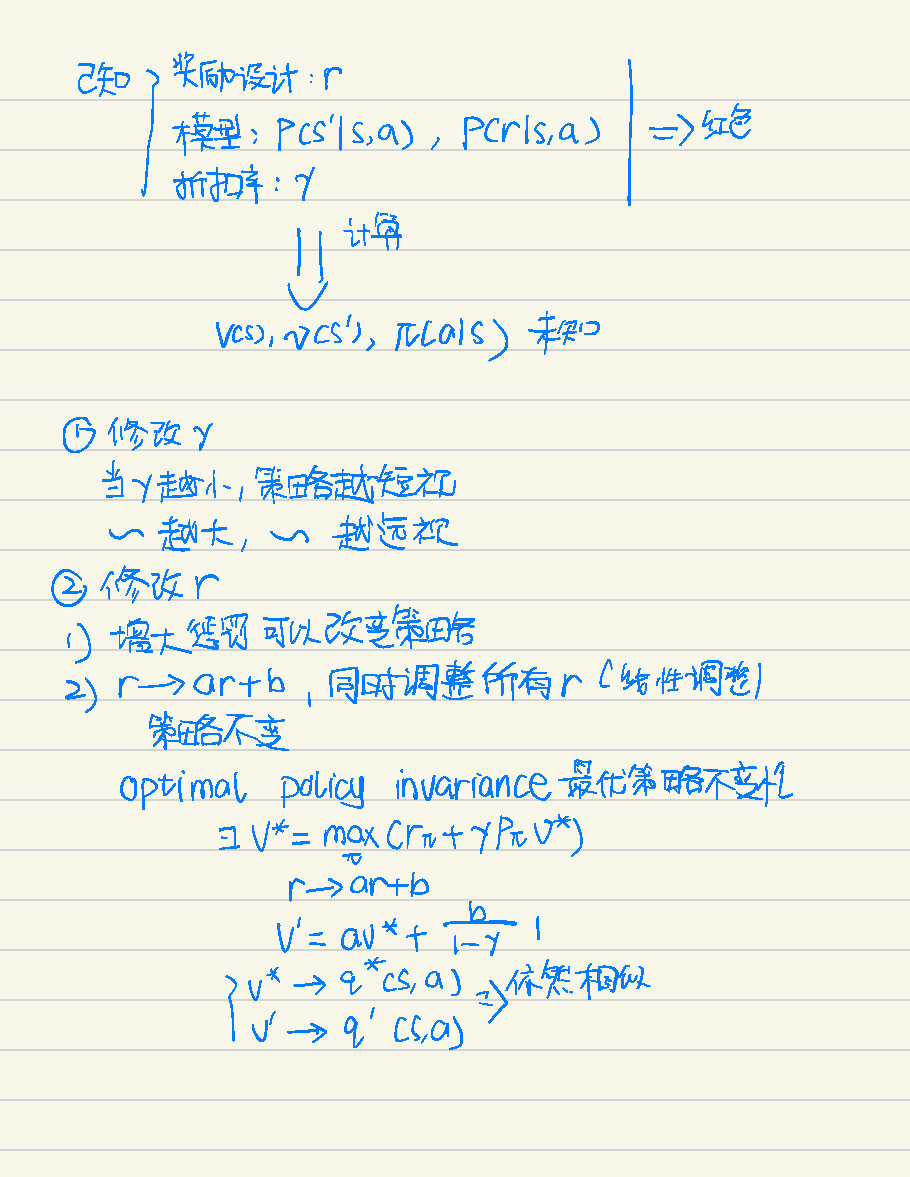 已知 { 奖励设计: r
模型: P(s'|s,a), P(r|s,a) | => 红色
折扣率: γ
计算
v(s), v(s'), π(a|s) 未知
① 修改γ
当γ越小, 策略越短视
~ 越大, ~ 越远视
② 修改r
1) 增大惩罚可以改变策略
2) r→ar+b, 同时调整所有r (线性调整)
策略不变
optimal policy invariance 最优策略不变性
∃ V* = max_π (r_π + γP_π V*)
r→ar+b
V' = av* + b/(1-γ) 1
{ v* → q*(s,a) => 依然相似
v' → q'(s,a)